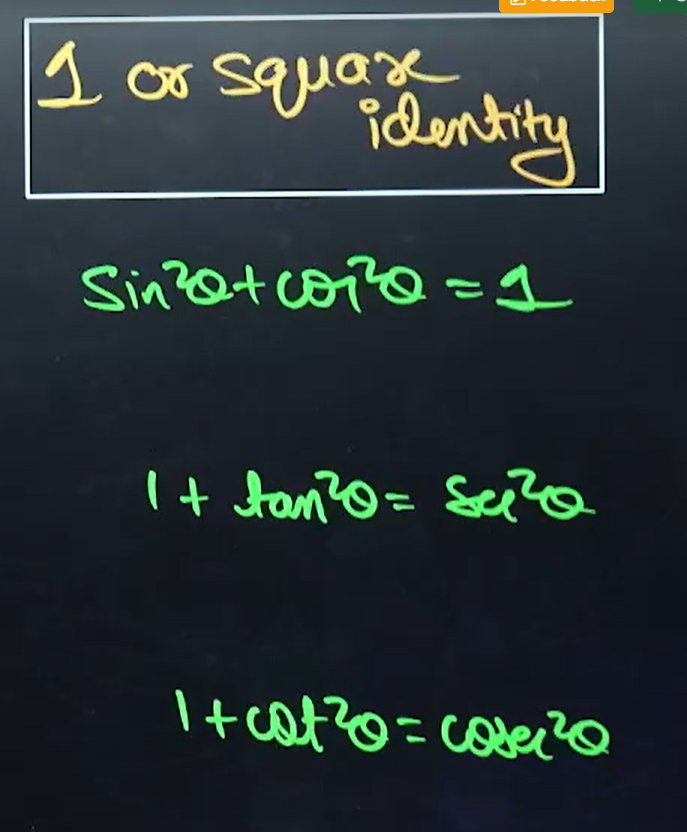 1 or square
identity
sin²θ + cos²θ = 1
1 + tan²θ = sec²θ
1 + cot²θ = cosec²θ